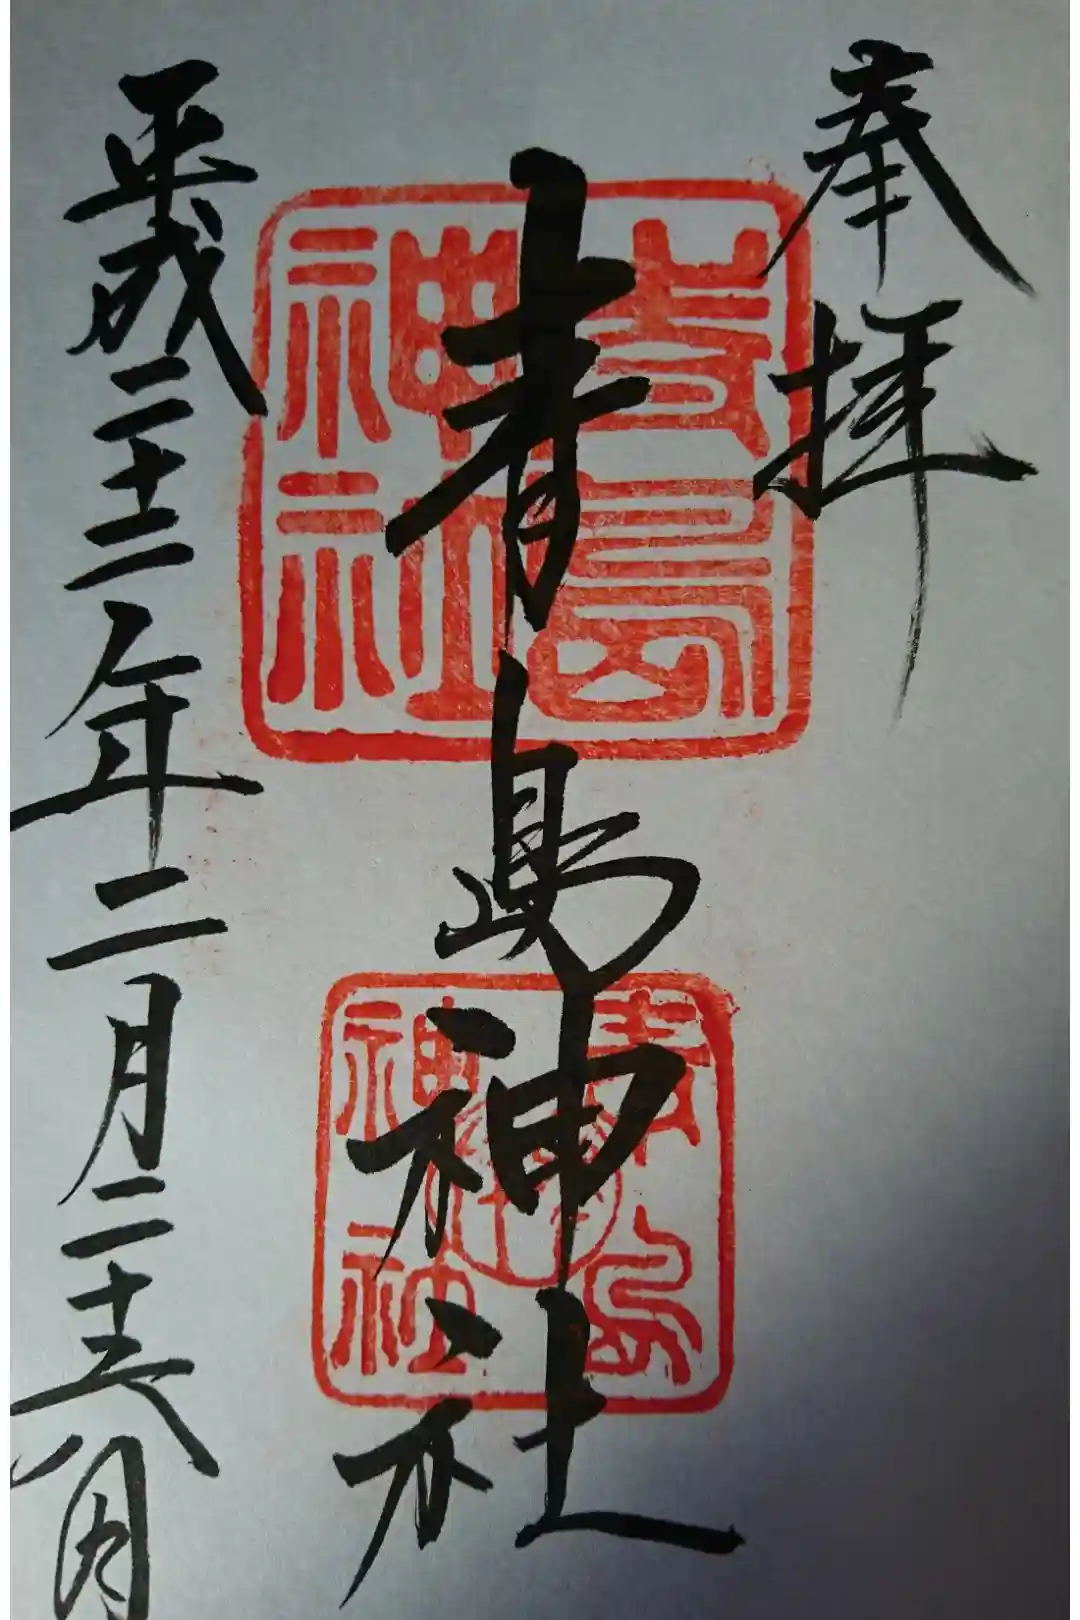 奉拝
青島神社
青島
神社
平成二十二年二月二十六日